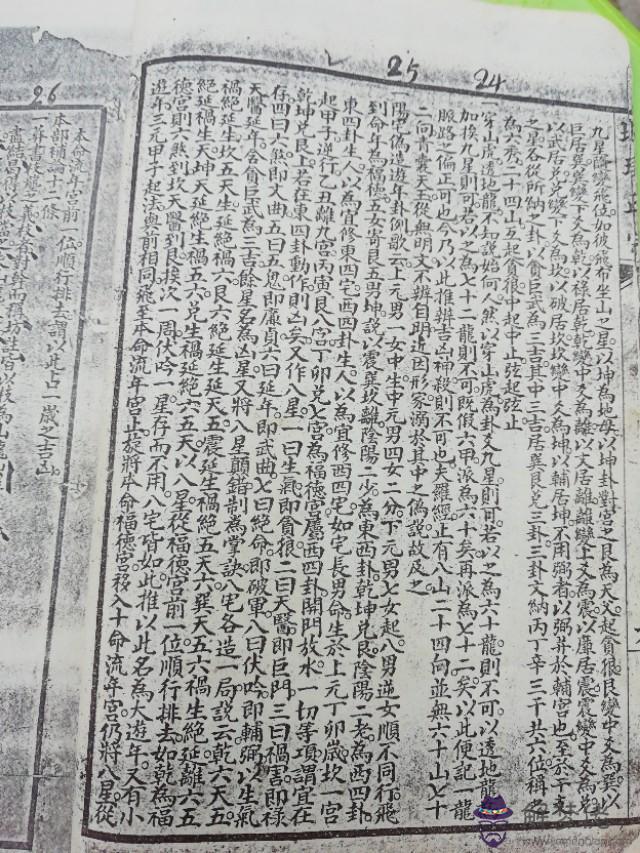 25
24
九星隨變飛位如彼飛布坐山之星以坤為地母以坤卦對宮之艮為天父起貪狼艮變中爻為巽以
巨居巽巽變下爻為乾以祿居乾乾變中爻為離以文居離離變上爻為震以廉居震震變中爻為兌
以武居兌兌變下爻為坎以破居坎坎變中爻為坤以輔居坤不用弼者以弼并於輔宮也至於干支
之星各從所納之卦以貪巨武為三吉其中三吉居艮巽兌三卦三卦又納丙丁辛三干共六位稱
為六秀二十四山互起貪狼中起中止弦起弦止
一穿山虎透地龍不知說始何人然以穿山虎為卦爻九星則可若以之為六十龍則不可以透地龍
加挨九星則可若以之為七十二龍則不可既假六甲派為六十矣再派為七十二矣以此便記一龍
脈路之偏正可也今乃以此推辨吉凶神殺則不可也夫羅經止有八山二十四向並無六十山七十
二向青囊天玉從無明文不辨自明近因形家溺於其中之偽說故及之
一陽宅偽造遊年卦例歌云上元男一女中生中元男四女二分下元男七女起八男逆女順不同行飛
到命年為福德五女寄艮五男坤說以震巽坎離陰陽二少為東四卦乾坤兌艮陰陽二老為西四卦
東四卦生人以為宜修東四宅西四卦生人以為宜修西四宅如宅長男命生於上元丁卯歲坎一宮
起甲子逆行乙丑離九宮丙寅艮八宮丁卯兌七宮為福德宮屬西四卦開門放水一切等項謂宜在
乾坤兌艮上若在東四卦動作則凶矣又作八星一曰生氣即貪狼二曰天醫即巨門三曰禍害即祿
存四曰六煞即文曲五曰五鬼即廉貞六曰延年即武曲七曰絕命即破軍八曰伏吟即輔弼以生氣
天醫延年合貪巨武為三吉餘星名為凶星又將八星顛錯制為掌訣八宅各造一局說云乾六天五
禍絕延生坎五天生延絕禍六艮六絕禍生延天五震延生禍絕五天六巽天五六禍生絕延離六五
絕延禍生天坤天延絕生禍五六兌生禍延絕六五天以八星從福德宮前一位順行排去如乾為福
德宮則六煞到坎天醫到艮挨次一周伏吟一星存而不用八宅皆如此推以此名為大遊年又有小
遊年三元甲子起法與前相同飛至本命流年宮止於將本命福德宮移入十命流年宮仍將八星從
26
本命流年宮前一位順行排去謂以此占一歲之吉凶
本部補論十二條